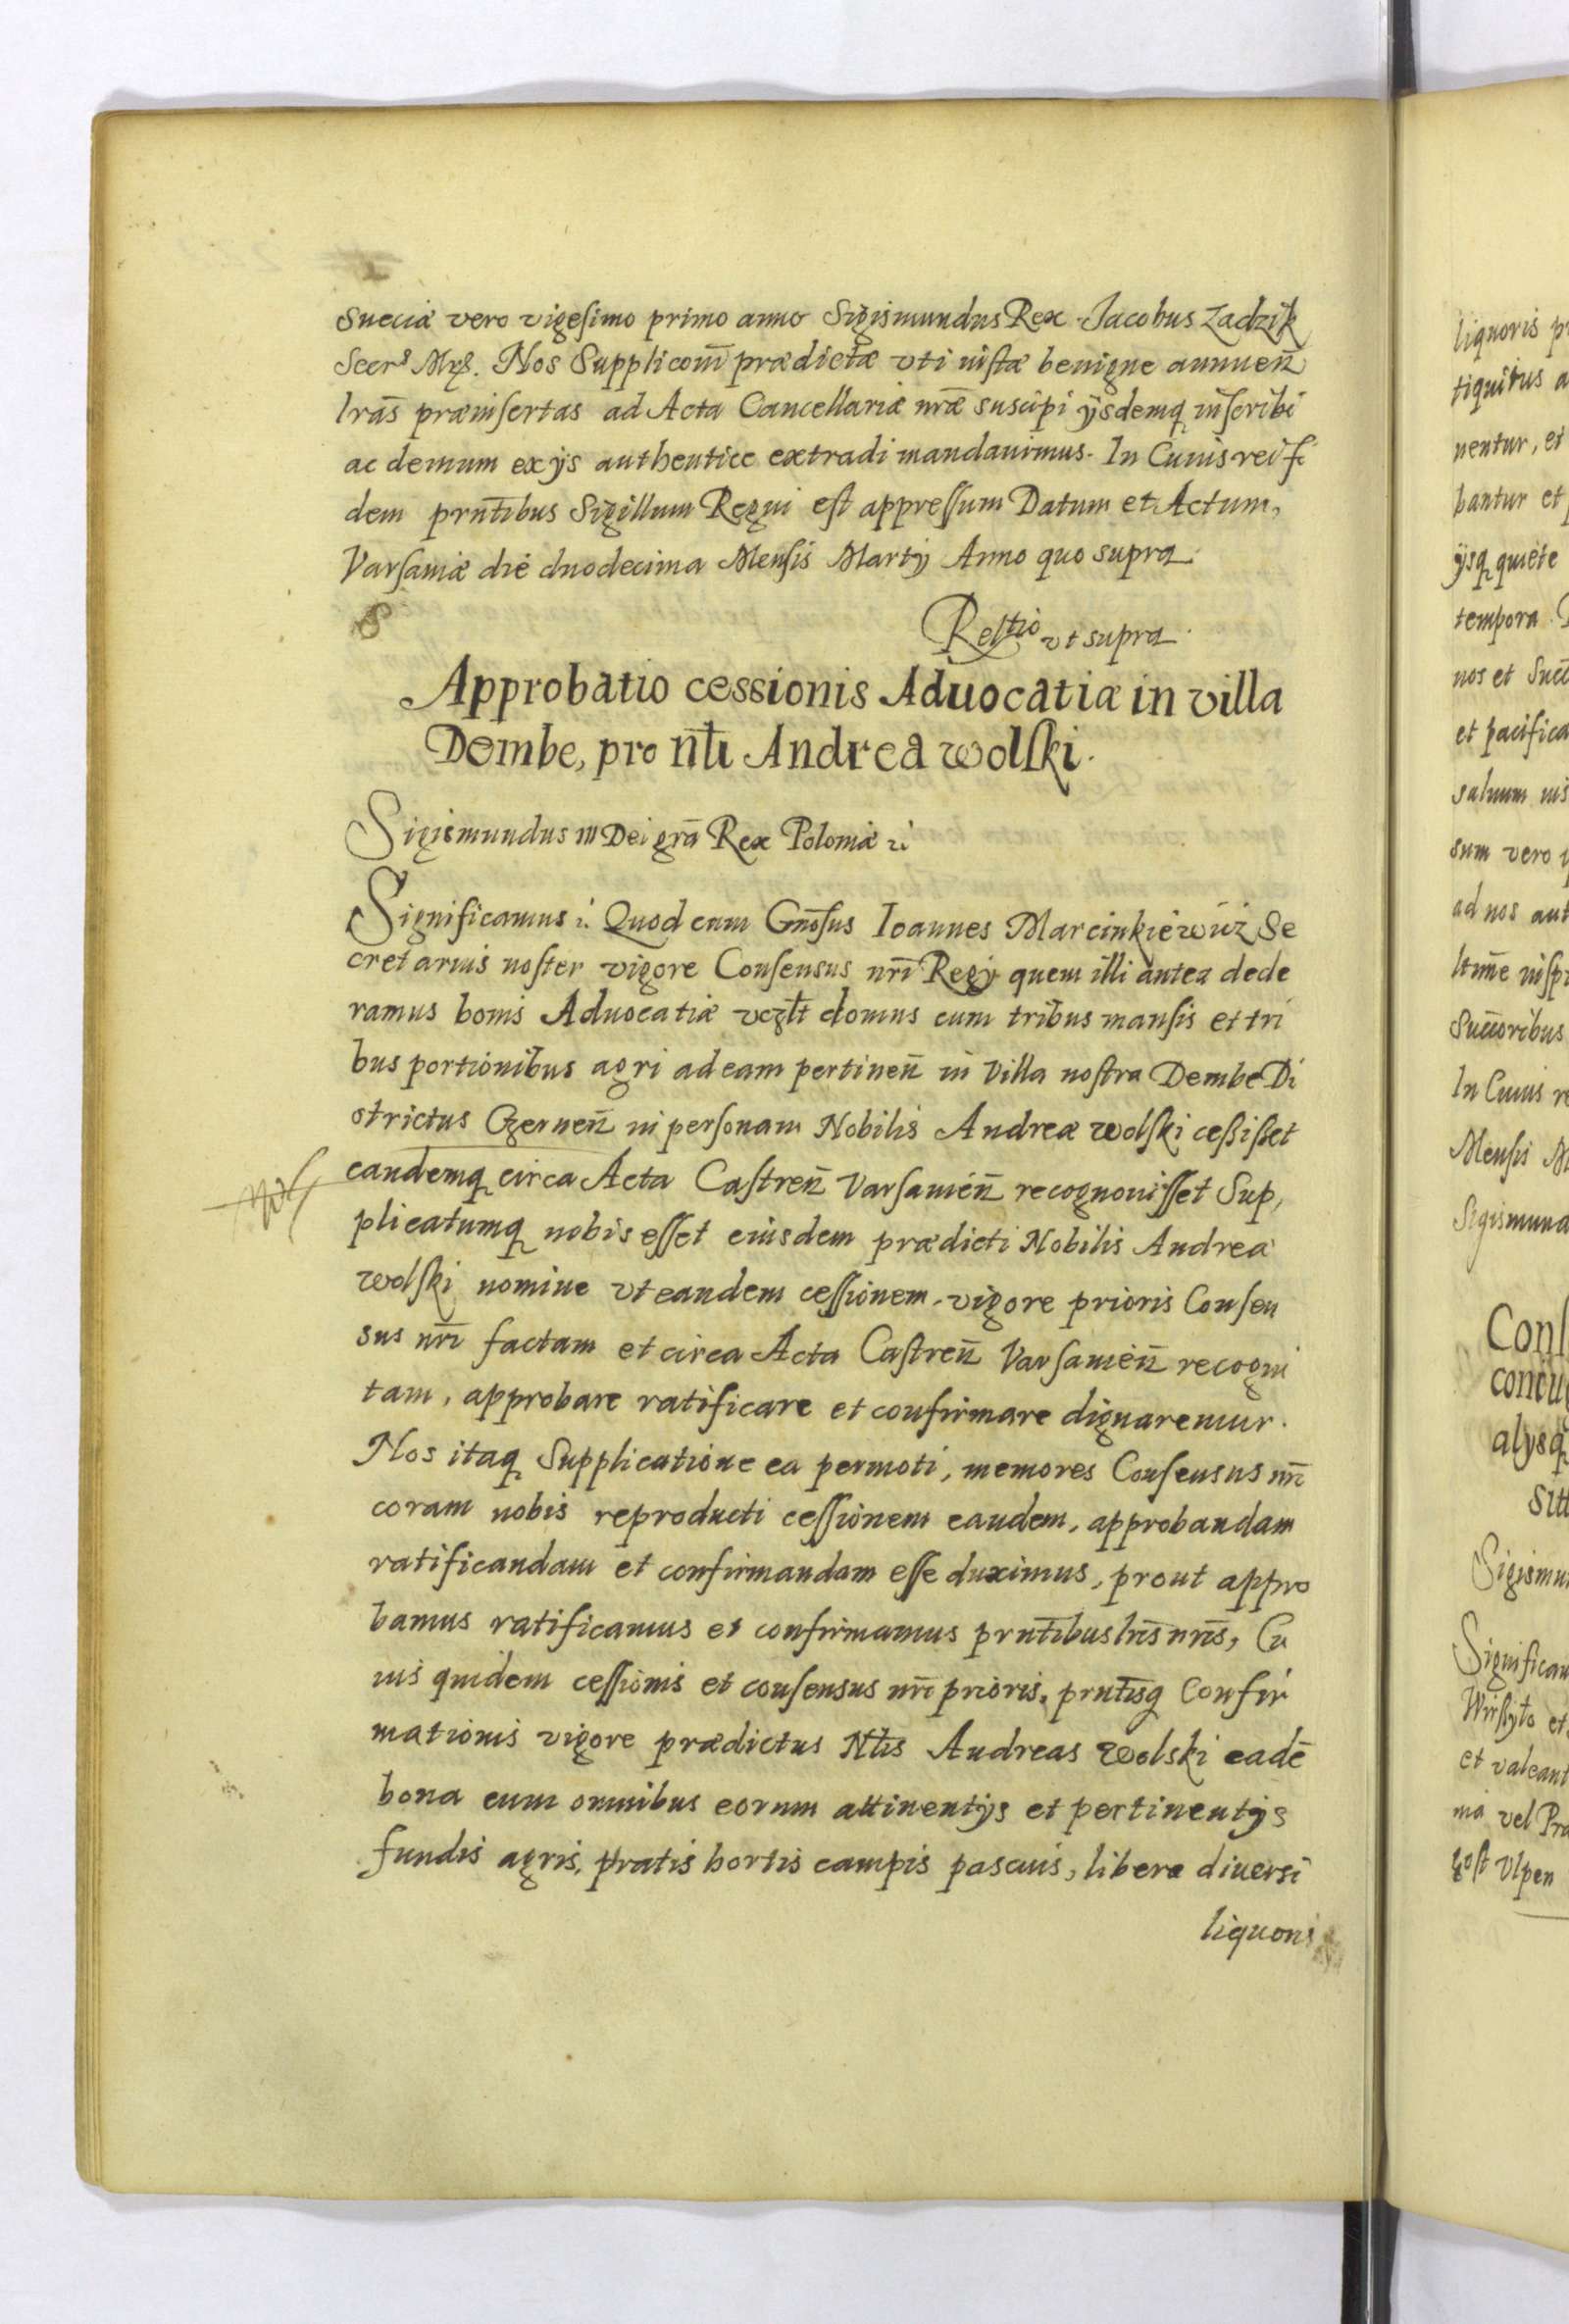 Sueciæ vero vigesimo primo anno Sigismundus Rex. Jacobus Zadzik
Secrs Mrs. Nos Suppliconi prædictæ uti iustæ benigne annuen̄
lrãs præinsertas ad Acta Cancellariæ nrãe suscipi ijsdemq inscribi
ac demum ex ijs authentice extradi mandauimus. In Cuius rei fi
dem prntibus Sigillum Regni est appressum Datum et Actum,
Varsauiæ die duodecima Mensis Martij Anno quo supra.
Reltio vt supra.
Approbatio cessionis Aduocatiæ in villa
Dombe, pro Nt̄li Andrea wolski.
Sigismundus III Dei grã Rex Poloniæ
Significamus Quod cum Gnōsus Ioannes Marcinkiewicz Se
cretarius noster vigore Consensus nrī Regij quem illi antea dede
ramus bonis Aduocatiæ vczlt domus cum tribus mansis et tri
bus portionibus agri ad eam pertinen̄ in Villa nostra Dembe Di
strictus Czernen̄ in personam Nobilis Andreæ wolski cessisset
eandemq circa Acta Castren̄ Varsauien̄ recognouisset Sup,
plicatumq nobis esset eiusdem prædicti Nobilis Andreæ
wolski nomine vt eandem cessionem, vigore prioris Consen
sus nrī factam et circa Acta Castren̄ Varsauien̄ recogni
tam, approbare ratificare et confirmare dignaremur.
Nos itaq Supplicatione ea permoti, memores Consensus nrī
coram nobis reproducti cessionem eandem, approbandam
ratificandam et confirmandam esse duximus, prout appro
bamus ratificamus et confirmamus prntibus lrīs nrīs, Cu
ius quidem cessionis et consensus nrī prioris, prntisq Confir
mationis vigore prædictus Ntlis Andreas Wolski eadē
bona cum omnibus eorum attinentijs et pertinentijs
fundis agris, pratis hortis campis pascuis, libera diuersi
liquoris
liquoris
tiquitus
nentur, et
bantur et
ijsq quiete
tempora.
nos et
et pacifica
saluum
sum vero
ad nos aut
Succoribus
In Cuius
Mensis
Sigismund
alysq